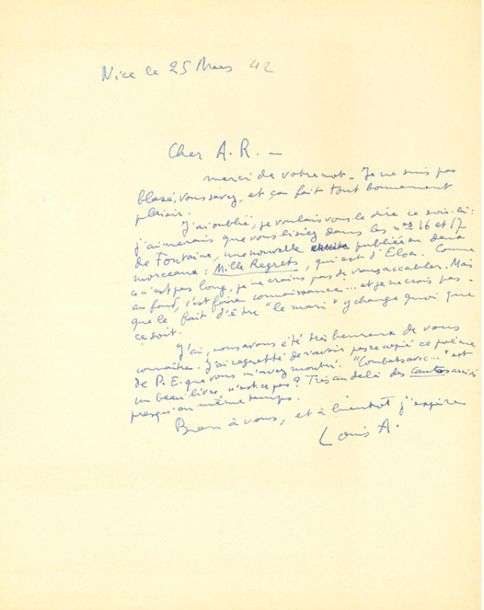 Nice le 25 Mars 42
Cher A. R. —
merci de votre mot. Je ne suis pas
blasé, vous savez, et ça fait tout bonnement
plaisir.
J'ai oublié, je voulais vous le dire ce soir-là:
j'aimerais que vous lisiez dans les nos 16 et 17
de Fontaine, une nouvelle publiée en deux
morceaux: Mille Regrets, qui est d'Elsa. Comme
ce n'est pas long, je ne crains pas de vous accabler. Mais
au fond, c'est faire connaissance... et je ne crois pas
que le fait d'être "le mari" y change quoi que
ce soit.
J'ai, nous avons été très heureux de vous
connaître. J'ai regretté de n'avoir pas recopié ce poème
de P. E. que vous m'avez montré. "Combat avec..." est
un beau livre, n'est-ce pas? Très au delà des
presqu'au même temps.
Bien à vous, et à bientôt j'espère
Louis A.